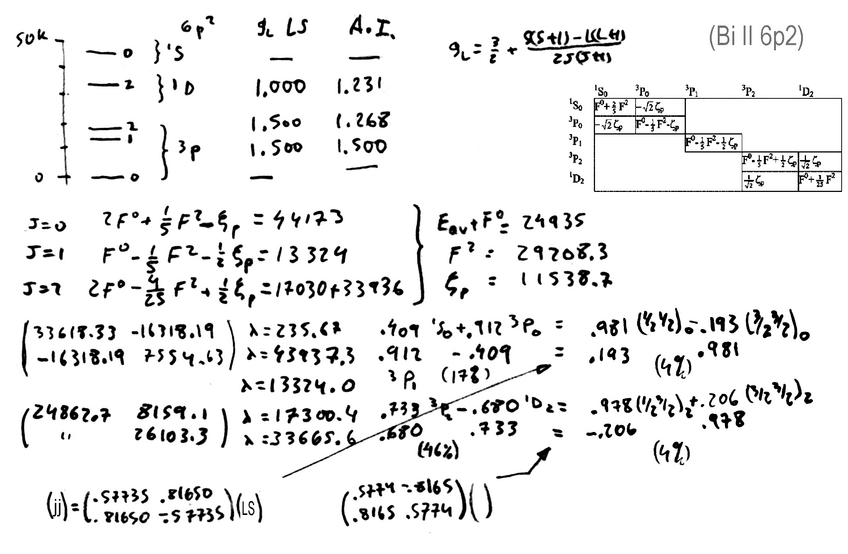 6p² g_L LS A.I.
50k
0 } ¹S — —
2 } ¹D 1.000 1.231
2 1.500 1.268
1 } ³P 1.500 1.500
0 0 — —
g_L = 3/2 + S(S+1)-L(L+1) / 2J(J+1)
(Bi II 6p2)
¹S₀ ³P₀ ³P₁ ³P₂ ¹D₂
¹S₀ F⁰+2/5 F² -√2 ζp
³P₀ -√2 ζp F⁰-1/5 F²-ζp
³P₁ F⁰-1/5 F²-1/2 ζp
³P₂ F⁰-1/5 F²+1/2 ζp 1/√2 ζp
¹D₂ 1/√2 ζp F⁰+1/25 F²
J=0 2F⁰+1/5 F²-ξp = 44173
J=1 F⁰-1/5 F²-1/2 ξp = 13324
J=2 2F⁰-4/25 F²+1/2 ξp = 17030+33936
E_av+F⁰= 24935
F² = 29208.3
ξp = 11538.7
(33618.33 -16318.19) λ=235.67 .409 ¹S₀+.912 ³P₀ = .981 (½ ½)₀ -.193 (3/2 3/2)₀
(-16318.19 7554.63) λ=43937.3 .912 -.409 = .193 .981
(4%)
λ=13324.0 ³P₁ (178)
(24862.7 8159.1) λ=17300.4 .733 ³P₂ -.680 ¹D₂ = .978 (1/2 3/2)₂ +.206 (3/2 3/2)₂
(" 26103.3) λ=33665.6 .680 .733 = -.206 .978
(46%) (4%)
(jj) = (.57735 .81650 / .81650 -.57735) (LS)
(.5774 -.8165 / .8165 .5774) ( )